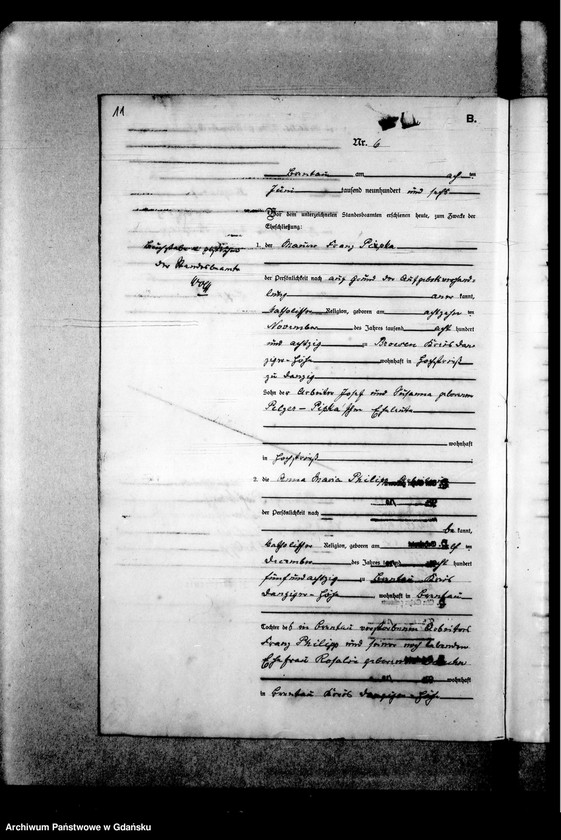 11
B.
Nr. 6
Brentau am acht ten
Juni tausend neunhundert und sechs
Vor dem unterzeichneten Standesbeamten erschienen heute, zum Zwecke der
Eheschließung:
1. der Maurer Franz Pipka
der Persönlichkeit nach auf Grund der Aufgebotsverhand-
lung aner kannt,
katholischer Religion, geboren am achtzehn ten
November des Jahres tausend acht hundert
und achtzig zu Broesen Kreis Dan-
ziger Höhe wohnhaft in Hochstrieß
zu Danzig
Sohn der Arbeiter Josef und Susanna geborenen
Pelzer - Pipka'schen Eheleute
wohnhaft
in Hochstrieß
2. die Anna Maria Philipp
der Persönlichkeit nach
be kannt,
katholischer Religion, geboren am elf ten
December des Jahres tausend acht hundert
fünfundachtzig zu Brentau Kreis
Danziger Höhe wohnhaft in Brentau
Tochter des in Brentau verstorbenen Arbeiters
Franz Philipp und seiner noch lebenden
Ehefrau Rosalie geborenen
wohnhaft
in Brentau Kreis Danziger Höhe
der Standesbeamte
Archiwum Państwowe w Gdańsku